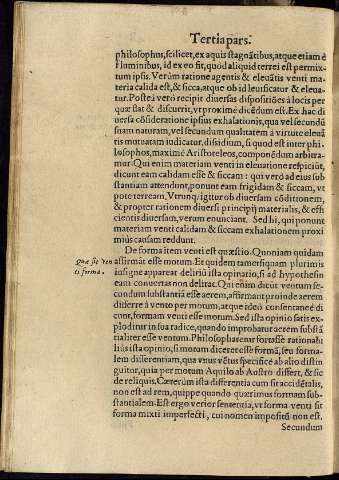 Tertia pars.
philosophus, scilicet, ex aquis stagnātibus, atque etiam è
fluminibus, id ex eo fit, quòd aliquid terrei est permix-
tum ipsis. Verùm ratione agentis & eleuātis venti ma-
teria calida est, & sicca, atque ob id leuificatur & eleua-
tur. Posteà verò recipit diuersas dispositiōes à locis per
quæ flat & discurrit, vt proximè dicēdum est. Ex hac di
uersa cōsideratione ipsius exhalationis, qua vel secundū
suam naturam, vel secundum qualitatem à virtute eleuā
tis mutuatam iudicatur, dissidium, si quod est inter phi-
losophos, maximè Aristoteleos, componēdum arbitra-
mur. Qui enim materiam venti in eleuatione respiciūt,
dicunt eam calidam esse & siccam: qui verò ad eius sub
stantiam attendunt, ponunt eam frigidam & siccam, vt
pote terream, Vtrunq; igitur ob diuersam cōditionem,
& propter rationem diuersi principij materialis, & effi
cientis diuersam, verum enunciant. Sed hi, qui ponunt
materiam venti calidam & siccam exhalationem proxi
miùs causam reddunt.
De forma item venti est quæstio. Quoniam quidam
Quæ sit ven
ti forma.
affirmāt esse motum. Et quidem tametsi quam plurimis
insigne appareat deliriū ista opinatio, si ad hypothesin
eam conuertas non delirat. Qui enim dicūt ventum se-
cundum substantiā esse aerem, affirmant proinde aerem
differre à vento per motum, atque ideò consentaneè di
cunt, formam venti esse motum. Sed ista opinio satis ex-
ploditur in sua radice, quando improbatur aerem substā
tialiter esse ventum. Philosopharentur fortasse rationabi
liùs ista opinio, si motum diceret esse formā, seu forma-
lem differentiam, qua vnus vētus specificè ab alio distin
guitur, quia per motum Aquilo ab Austro differt, & sic
de reliquis. Cæterùm ista differentia cum sit accidētalis,
non est ad rem, quippe quando quærimus formam sub-
stantialem. Est ergo verior sententia, vt forma venti sit
forma mixti imperfecti, cui nomen impositū non est.
Secundum